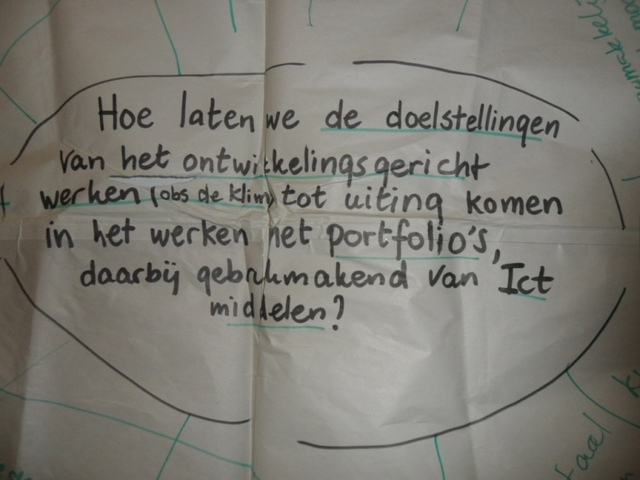 Hoe laten we de doelstellingen
van het ontwikkelingsgericht
werken (obs de Klim) tot uiting komen
in het werken met portfolio's,
daarbij gebruikmakend van Ict
middelen?